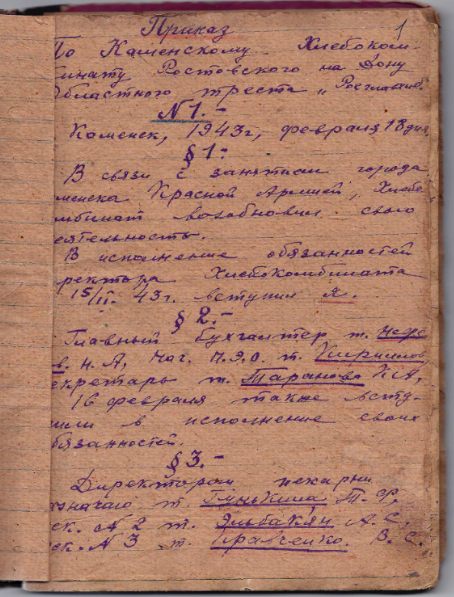 1
Приказ
По Каменскому Хлебоком-
бинату Ростовского на Дону
Областного треста „Росглавхлеб"
№ 1.-
Каменск, 1943г, февраля 18 дня
§ 1-
В связи с занятием города
менска Красной Армией, Хлебо
мбинат возобновил свою
еятельность.
В исполнение обязанностей
ректора Хлебокомбината
15/II- 43г. вступил я.
§ 2.-
Главный бухгалтер т.
в. Н.А, нач. т. Кириллов
екретарь т. Таранова К.А,
16 февраля также всту-
или в исполнение своих
бязанностей.
§ 3.-
Директором пекарни
значаю т. Гунькина Т. Ф,
ек. № 2 т. Эльбакян А. С,
ек. № 3 т. Кравченко. В. С.